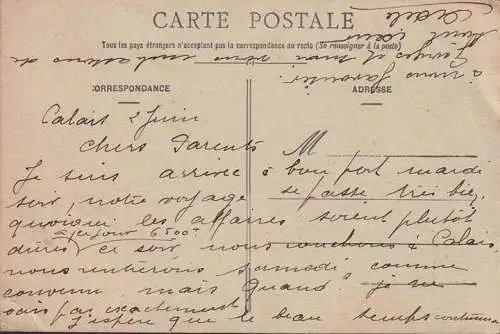 CARTE POSTALE
Tous les pays étrangers n'acceptent pas la correspondance au recto (Se renseigner à la poste)
CORRESPONDANCE
ADRESSE
M
Calais 2 Juin
Chers Parents
Je suis arrivée à bon port mardi
soir, notre voyage se passe très bien
quoique les affaires soient plutôt
à ce jour 6500 f
dures ce soir, nous couchons à Calais
nous rentrerons samedi, comme
convenu mais quand, je ne
sais pas exactement
J'espère que le beau temps continuera
Adèle